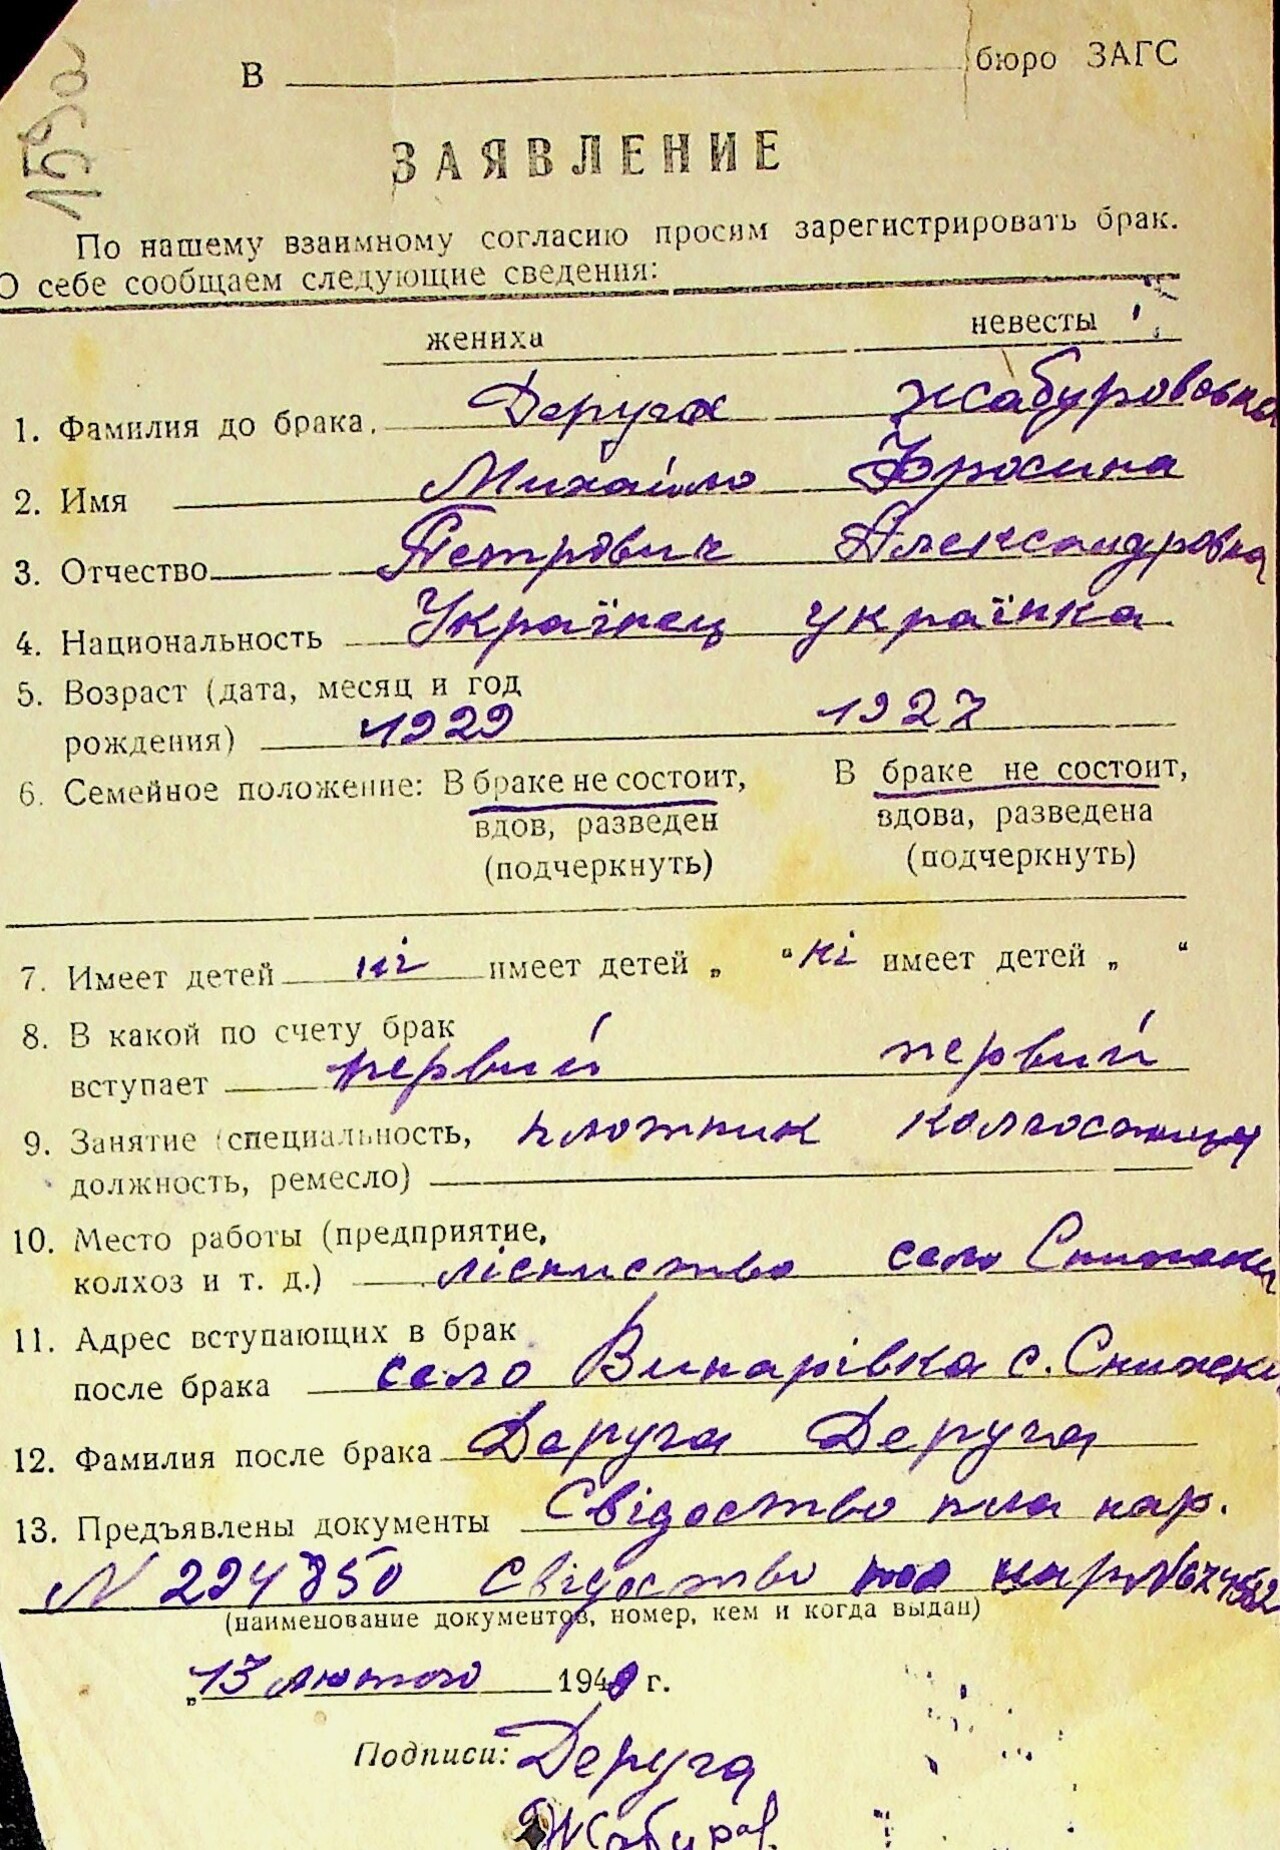 159а
В бюро ЗАГС
ЗАЯВЛЕНИЕ
По нашему взаимному согласию просим зарегистрировать брак.
О себе сообщаем следующие сведения:
жениха невесты
1. Фамилия до брака. Деруга Жабуровська
2. Имя Михайло Фросина
3. Отчество Петрович Александровна
4. Национальность Українец українка
5. Возраст (дата, месяц и год
рождения) 1929 1927
6. Семейное положение: В браке не состоит, В браке не состоит,
вдов, разведен вдова, разведена
(подчеркнуть) (подчеркнуть)
7. Имеет детей ні имеет детей „ “ ні имеет детей „ “
8. В какой по счету брак
вступает первий первий
9. Занятие (специальность, плотник колгоспниця
должность, ремесло)
10. Место работы (предприятие,
колхоз и т. д.) лісництво село
11. Адрес вступающих в брак
после брака село Винарівка с.
12. Фамилия после брака Деруга Деруга
13. Предъявлены документы Свідоство нар.
N 224850 Свідоство нар №
(наименование документов, номер, кем и когда выдан)
„13 лютого 194 г.
Подписи: Деруга
Жабуров.